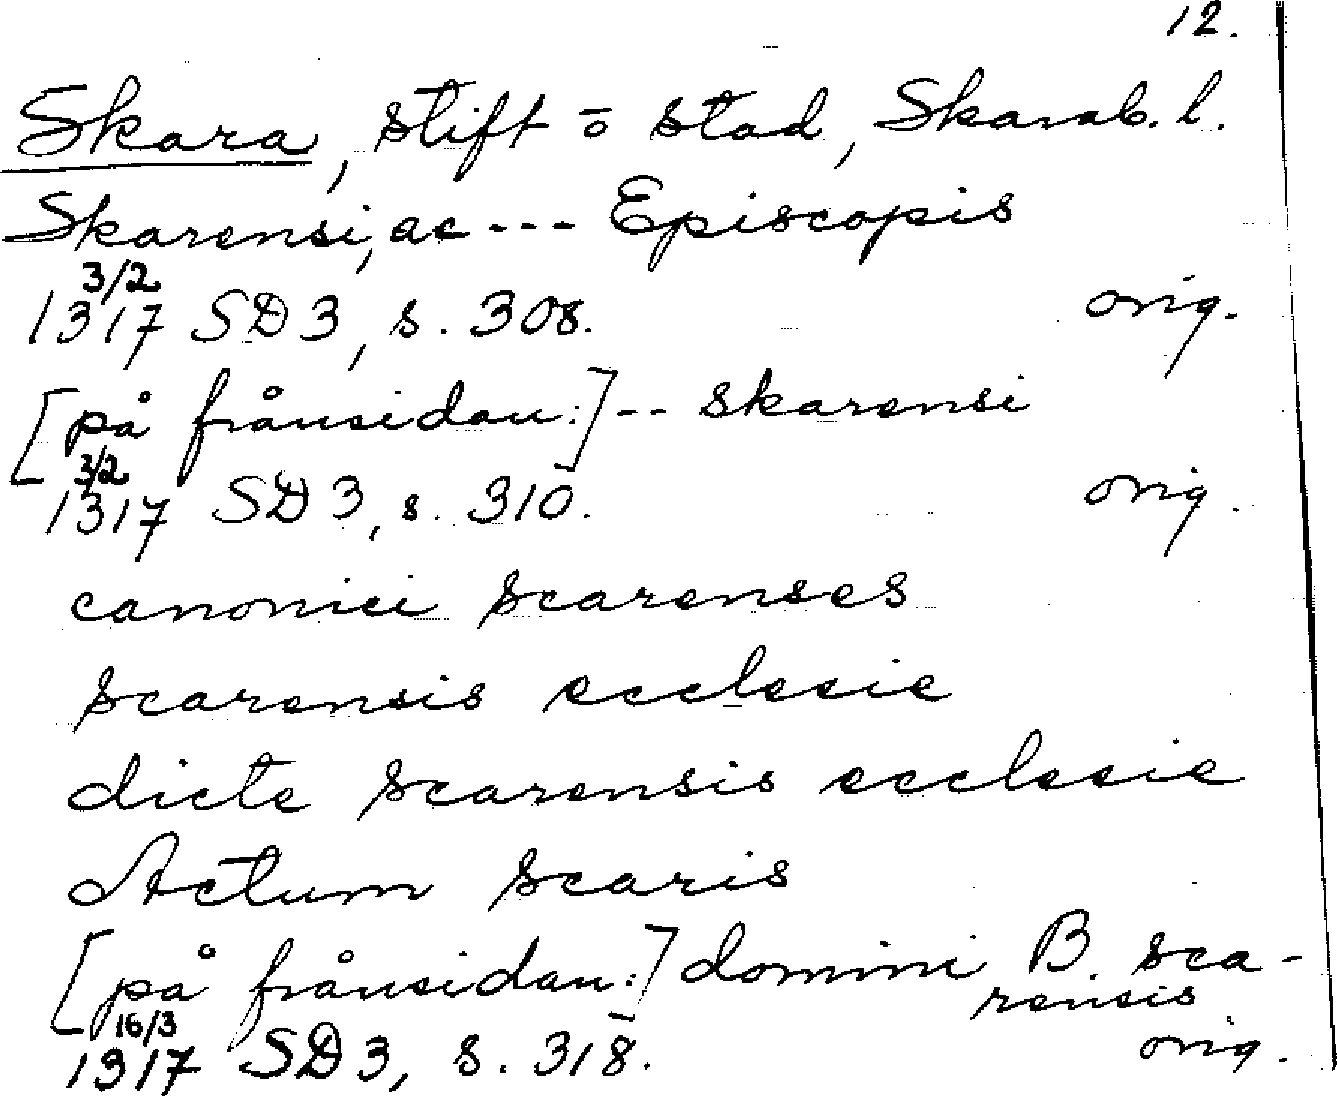 12.
Skara, stift o stad, Skarab. l.
Skarensi, ac --- Episcopis
3/2
1317 SD 3, s. 308. orig.
[på frånsidan:] -- skarensi
3/2
1317 SD 3, s. 310. orig.
canonici scarenses
scarensis ecclesie
dicte scarensis ecclesie
Actum scaris
[på frånsidan:] domini B. sca-
rensis
16/3
1317 SD 3, s. 318. orig.